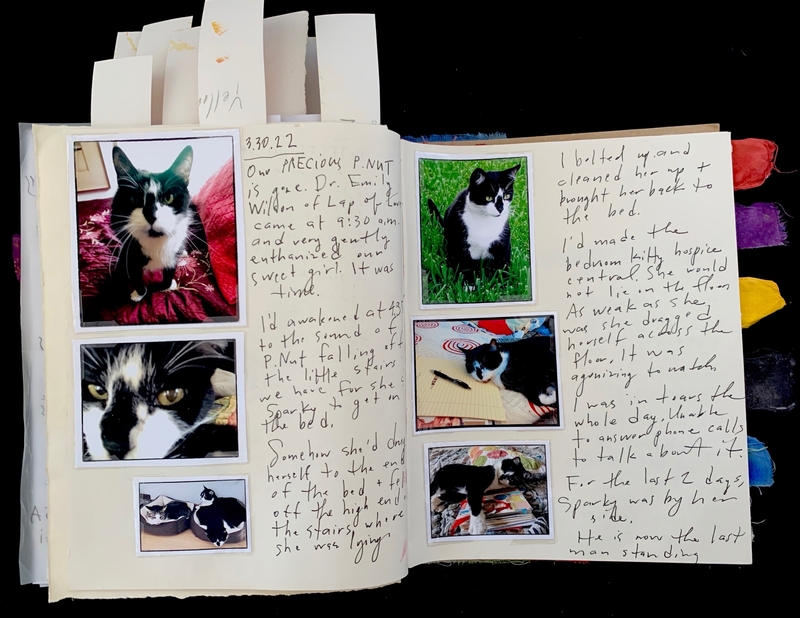 Yello
3.30.22
Our PRECIOUS P.NUT
is gone. Dr. Emily
Wilson of Lap of Love
came at 9:30 a.m.
and very gently
euthanized our
sweet girl. It was
time.
I'd awakened at
to the sound of
P.Nut falling off
the little stairs
we have for she
Sparky to get on
the bed.
Somehow she'd drug
herself to the end
of the bed + fell
off the high end
the stairs, where
she was lying
I bolted up and
cleaned her up +
brought her back to
the bed.
I'd made the
bedroom kitty hospice
central. She would
not lie on the floor
As weak as she
was she dragged
herself across the
floor. It was
agonizing to watch
I was in tears the
whole day. Unable
to answer phone calls
to talk about it.
For the last 2 days,
Sparky was by her
side.
He is now the last
man standing